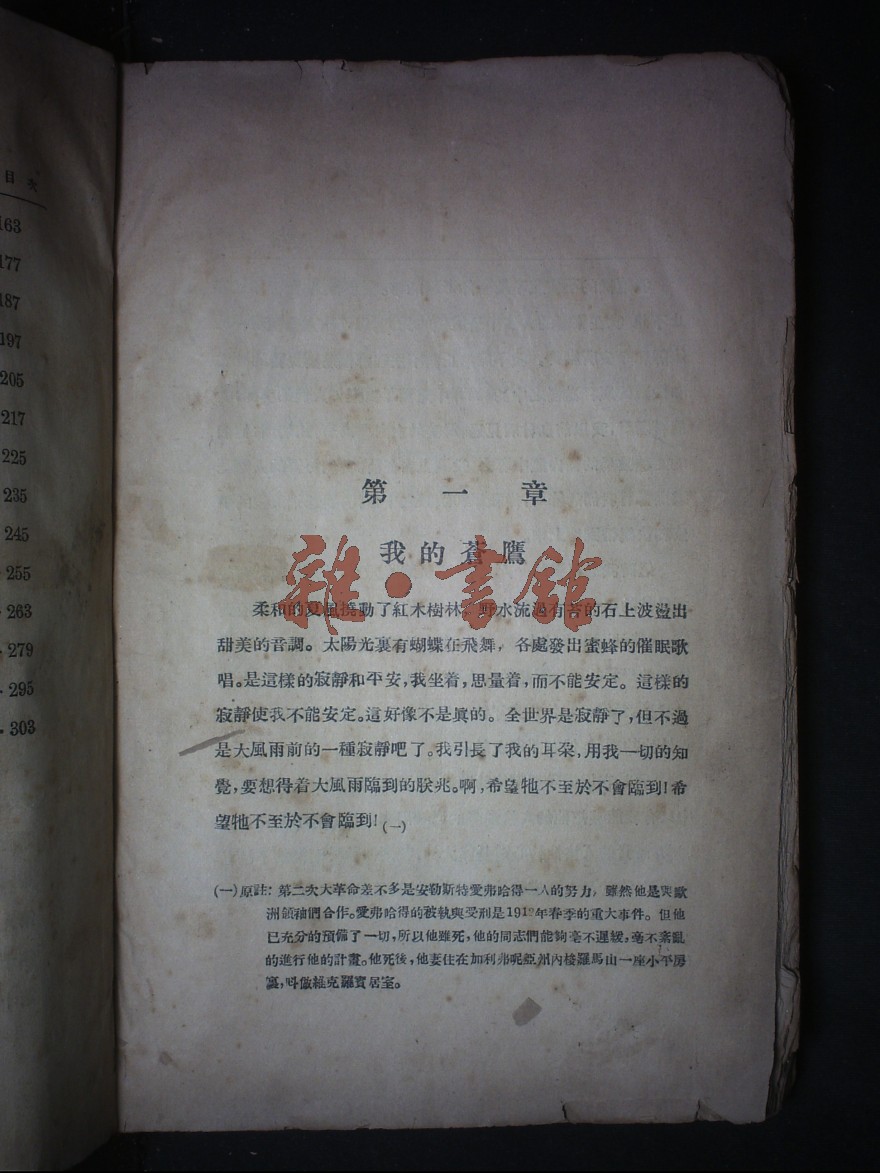 目次
163
177
187
197
205
217
225
235
245
255
263
279
295
303
第一章
我的蒼鷹
雜·書館
柔和的夏風撓動了紅木樹林，野水流過有苔的石上波盪出
甜美的音調。太陽光裏有蝴蝶在飛舞，各處發出蜜蜂的催眠歌
唱。是這樣的寂靜和平安，我坐着，思量着，而不能安定。這樣的
寂靜使我不能安定。這好像不是眞的。全世界是寂靜了，但不過
是大風雨前的一種寂靜吧了。我引長了我的耳朶，用我一切的知
覺，要想得着大風雨臨到的朕兆。啊，希望牠不至於不會臨到！希
望牠不至於不會臨到！(一)
(一)原註：第二次大革命差不多是安勒斯特愛弗哈得一人的努力，雖然他是與歐
洲領袖們合作。愛弗哈得的被執與受刑是19年春季的重大事件。但他
已充分的預備了一切，所以他雖死，他的同志們能夠毫不遲緩，毫不紊亂
的進行他的計畫。他死後，他妻住在加利弗呢亞州內梭羅馬山一座小平房
裏，叫做維克羅賓居室。